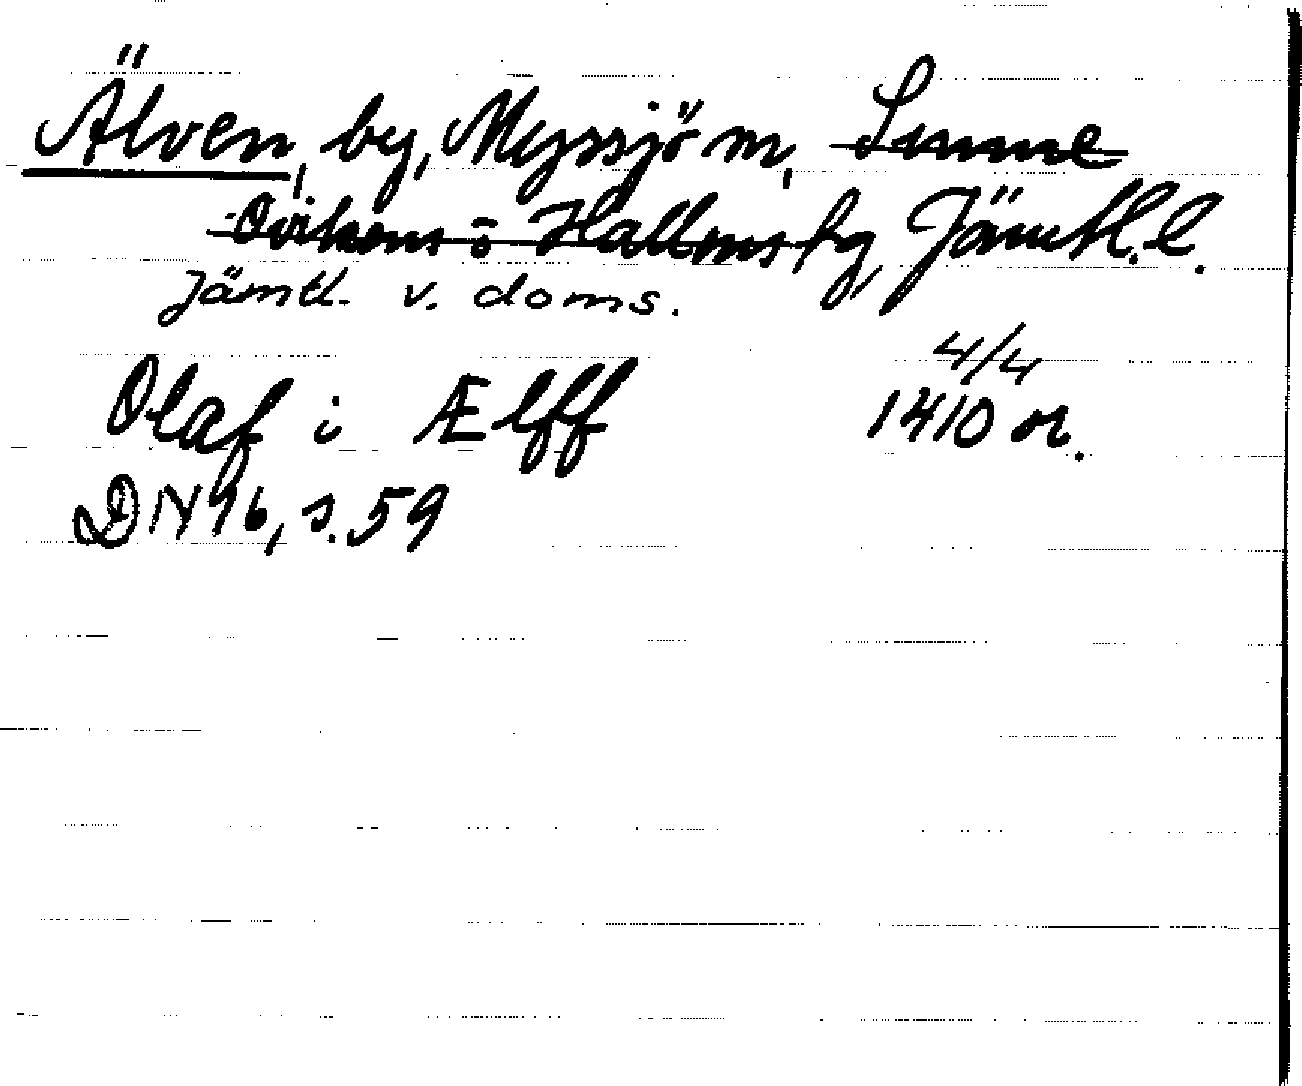 Älven, by, Myssjö sn, Sunne
Ovikens o Hallens tg, Jämtl. l.
Jämtl. v. doms.
4/4
Olaf i Ælff 1410 or.
DN 16, s. 59